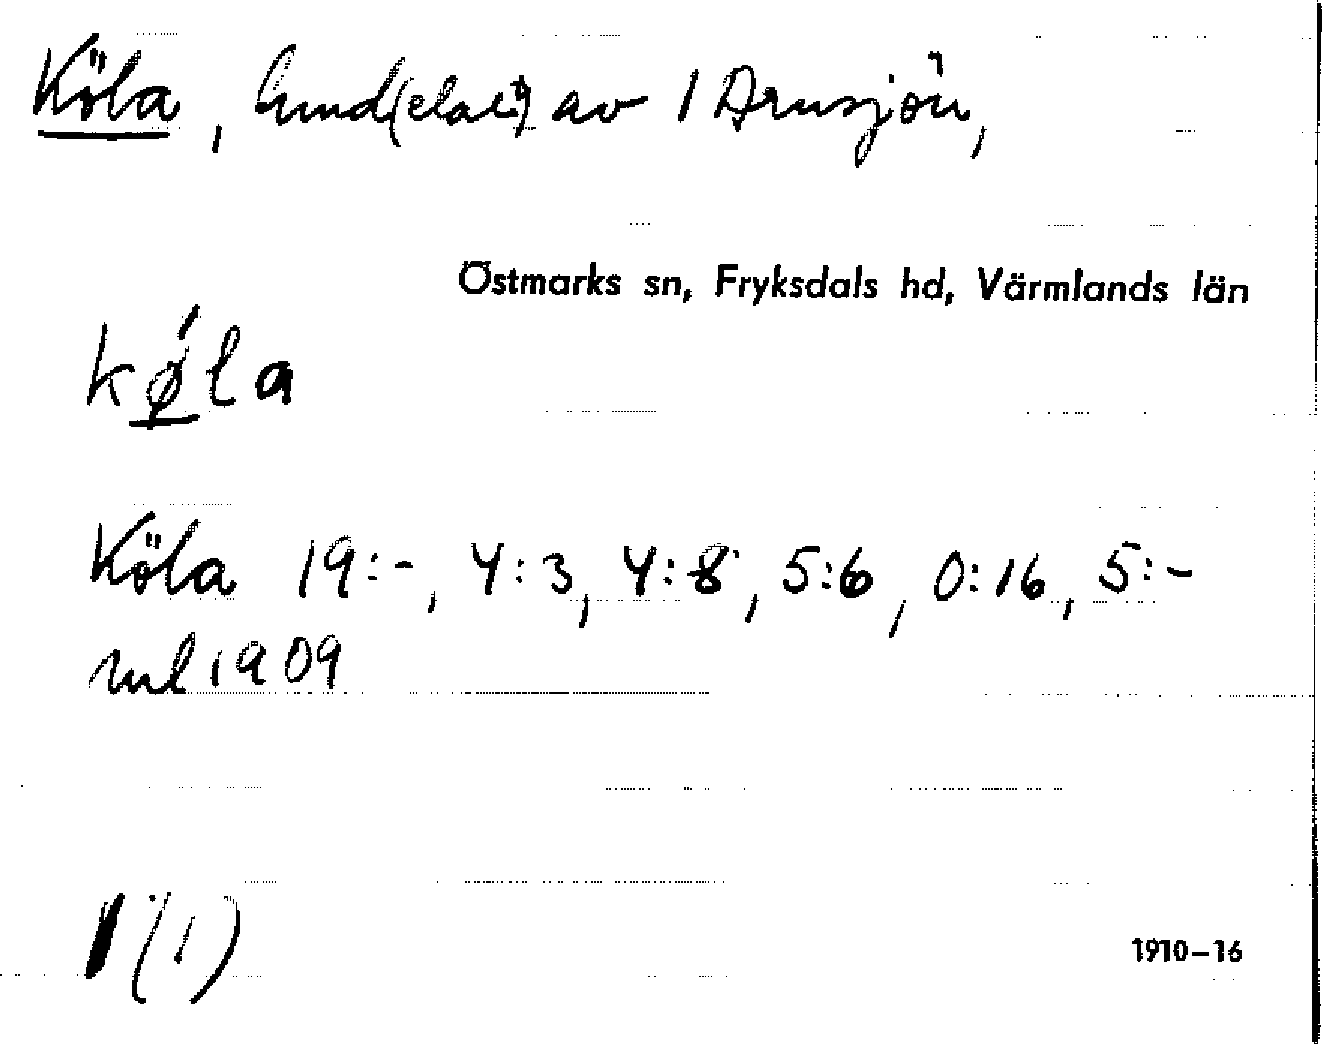 Köla, hmd(elar) av 1 Arnsjön,
Östmarks sn, Fryksdals hd, Värmlands län
kǿ̱la
Köla 19:-, 4:3, 4:8, 5:6, 0:16, 5:-
ml 1909
1 (1)
1910–16